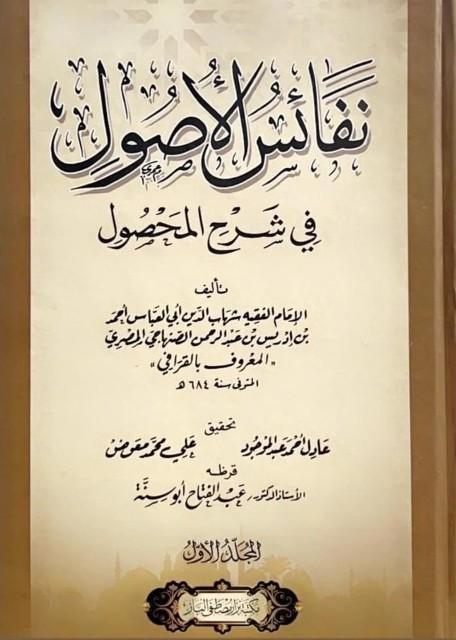 نَفَائِسُ الأُصُولِ
في شَرْحِ المَحْصُول
تأليف
الإمام الفقيه شهاب الدين أبي العباس أحمد
بن إدريس بن عبد الرحمن الصنهاجي المصري
"المعروف بالقرافي"
المتوفى سنة ٦٨٤ هـ
تحقيق
عادل أحمد عبد الموجود علي محمد معوض
قرظه
الأستاذ الدكتور/ عبد الفتاح أبو سنة
المجلد الأول
مكتبة نزار مصطفى الباز